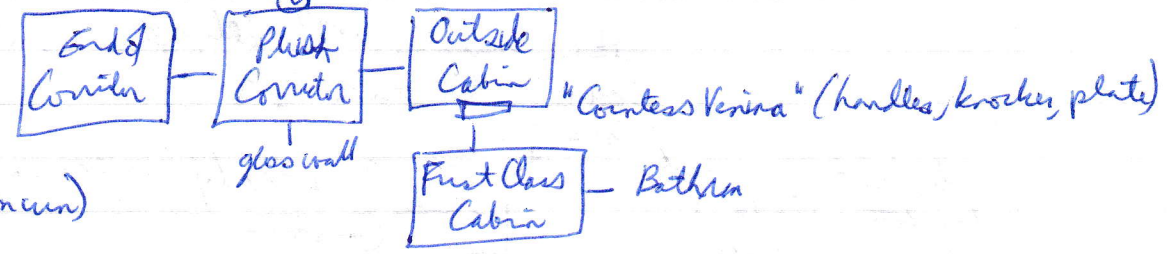 End of
Corridor
Plush
Corridor
Outside
Cabin
"Countess Venina" (handles, knocker, plate)
glass wall
First Class
Cabin
Bathrm